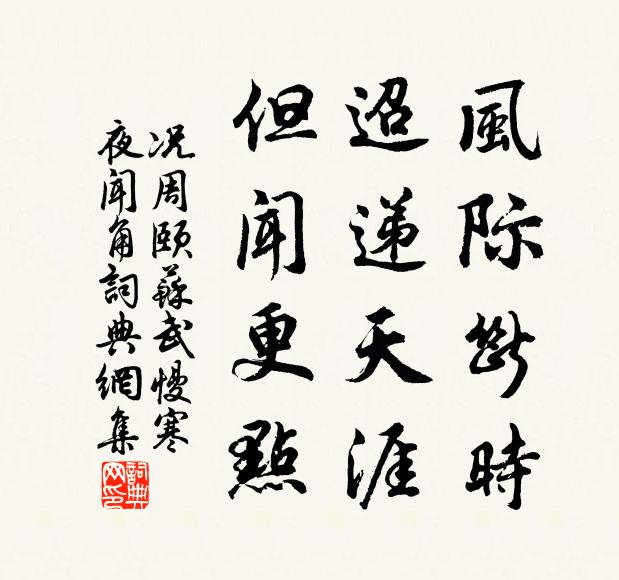 風際斷時
迢递天涯
但聞更點
况周頤蘇武慢寒
夜聞角詞典網集
詞典网印